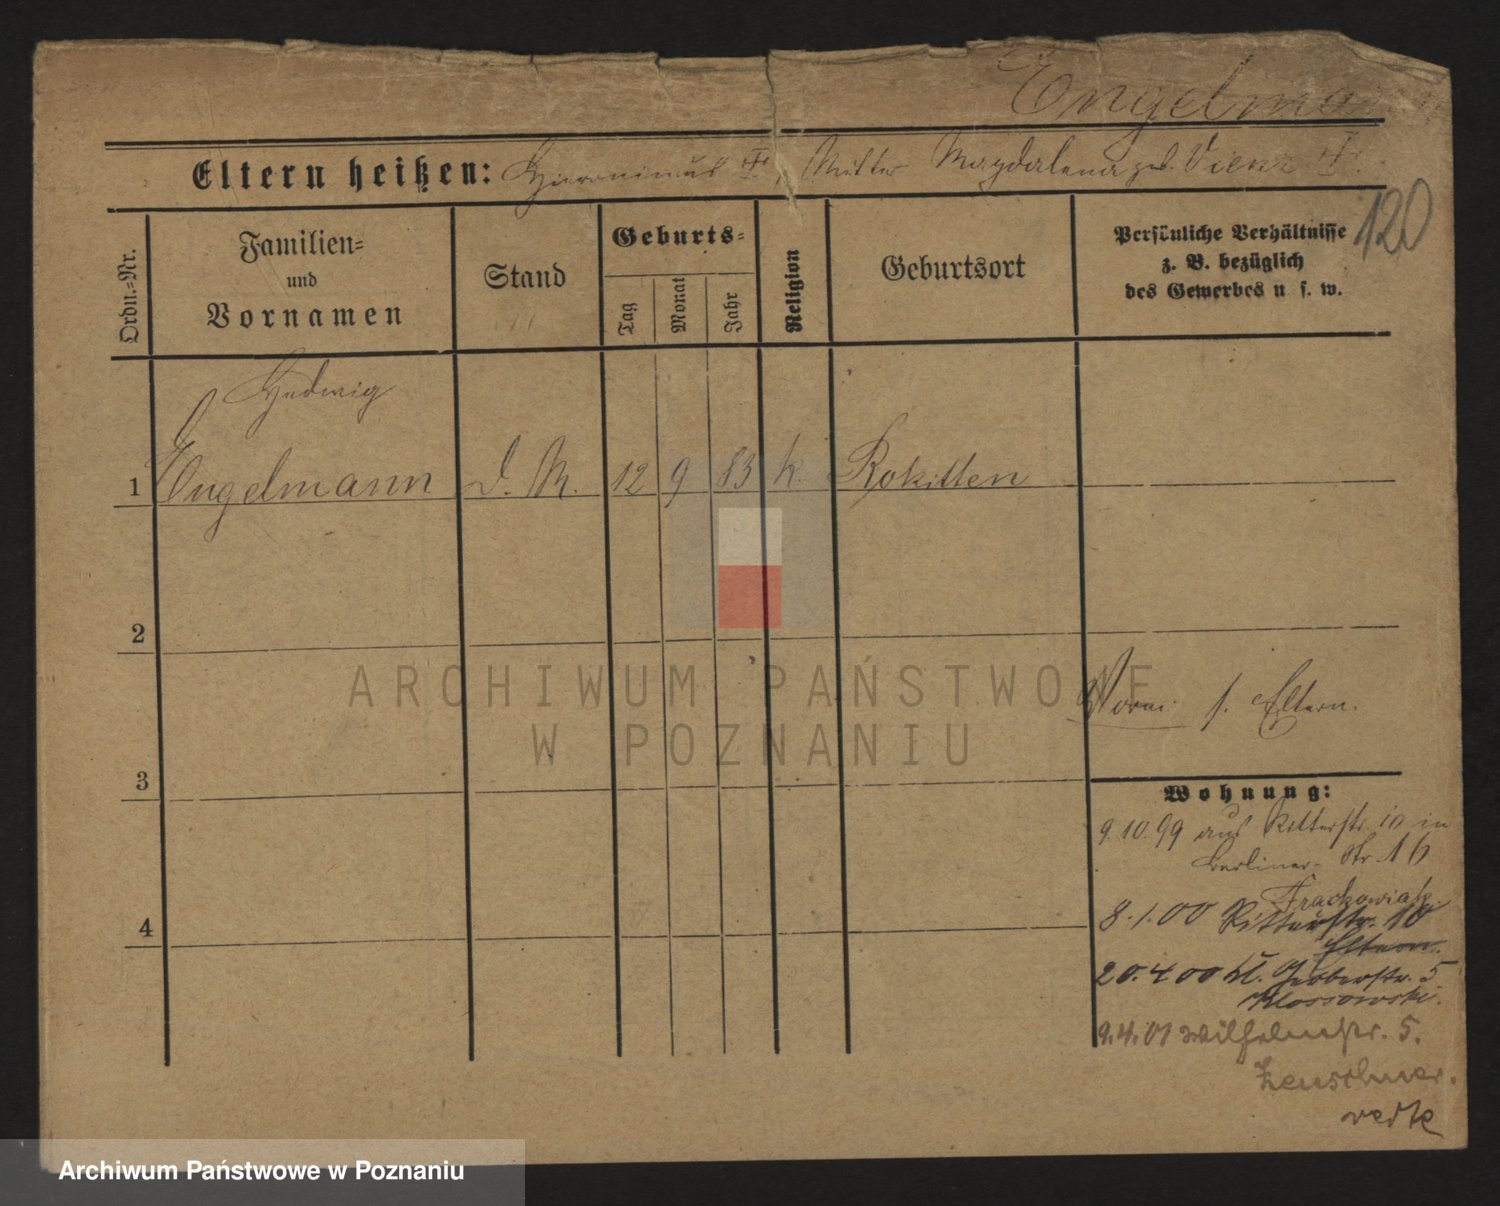 Engelmann
Eltern heißen: Hieronimus, Mutter Magdalena geb. Vienz
120
Ordn.-Nr.
Familien-
und
Vornamen
Stand
Geburts-
Tag
Monat
Jahr
Religion
Geburtsort
Persönliche Verhältnisse
z. B. bezüglich
des Gewerbes u. s. w.
Hedwig
1 Engelmann D. M. 12 9 83 k. Rokitten
2
ARCHIWUM PAŃSTWOWE
W POZNANIU
Vorm. s. Eltern.
3
Wohnung:
9.10.99 aus Ritterstr. 10 in
Berliner-Str. 16
Frackowiak
8.1.00 Ritterstr. 10
Eltern.
4
20.4.00 kl. Gerberstr. 5
Klossowski.
9.4.01 Wilhelmstr. 5.
Zeuschner.
Archiwum Państwowe w Poznaniu